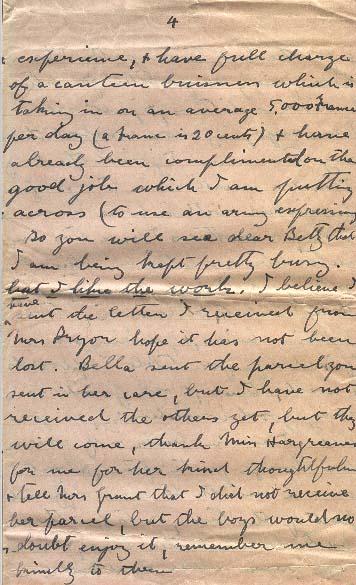 4
experience, & have full charge
of a canteen buisness which is
taking in on an average 5,000 Francs
per day (a Franc is 20 cents) & have
already been complimented on the
good job which I am putting
across (to use an army expression
So you will see dear Betty that
I am being kept pretty busy.
but I like the work. I believe I
have
sent the letter I received from
Mrs Pryor hope it has not been
lost. Bella sent the parcel you
sent in her care, but I have not
received the others yet, but they
will come, thank Miss Hargreaves
for me for her kind thoughtfulness
& tell Mrs Grant that I did not receive
her parcel, but the boys would no
doubt enjoy it, remember me
kindly to them